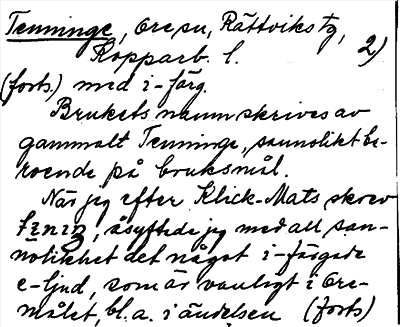 Tenninge, Ore sn, Rättviks tg,
Kopparb. l. 2)
(forts.) med i-färg.
Brukets namn skrives av
gammalt Tenninge, sannolikt be-
roende på bruksmål.
När jag efter Klick-Mats skrev
, åsyftade jag med all san-
nolikhet det något i-färgade
e-ljud, som är vanligt i Ore-
målet, bl. a. i ändelsen (forts)